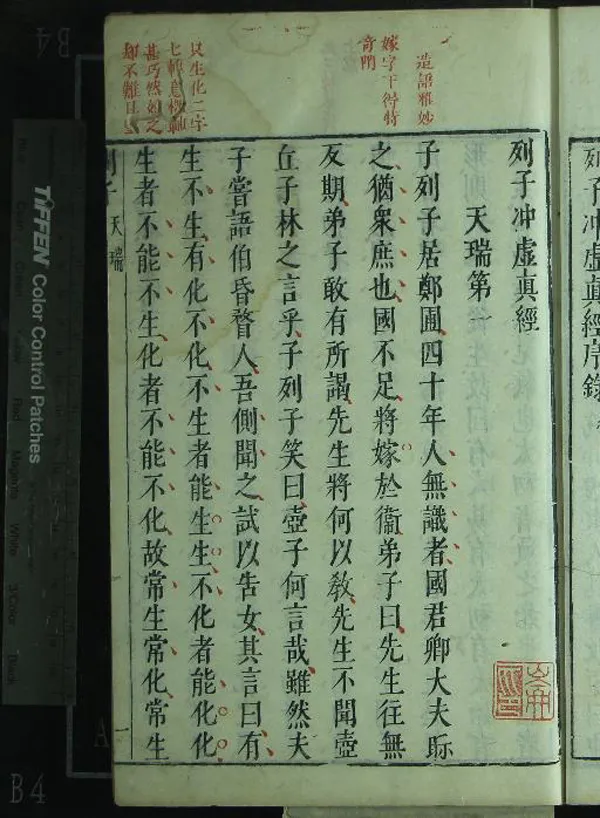 列子冲虛眞經序錄
列子冲虛眞經
天瑞第一
子列子居鄭圃四十年人無識者國君卿大夫眎
之猶衆庶也國不足將嫁於衞弟子曰先生往無
反期弟子敢有所謁先生將何以敎先生不聞壺
丘子林之言乎子列子笑曰壺子何言哉雖然夫
子嘗語伯昏瞀人吾側聞之試以告女其言曰有
生不生有化不化不生者能生生不化者能化化
生者不能不生化者不能不化故常生常化常生
列子 天瑞 一
造語雅妙
嫁字下得特
奇階
生化二字
七
甚巧然如之
却不難
TIFFEN Color Control Patches
Red
Magenta
White
3/Color
Black
B4
B4
A